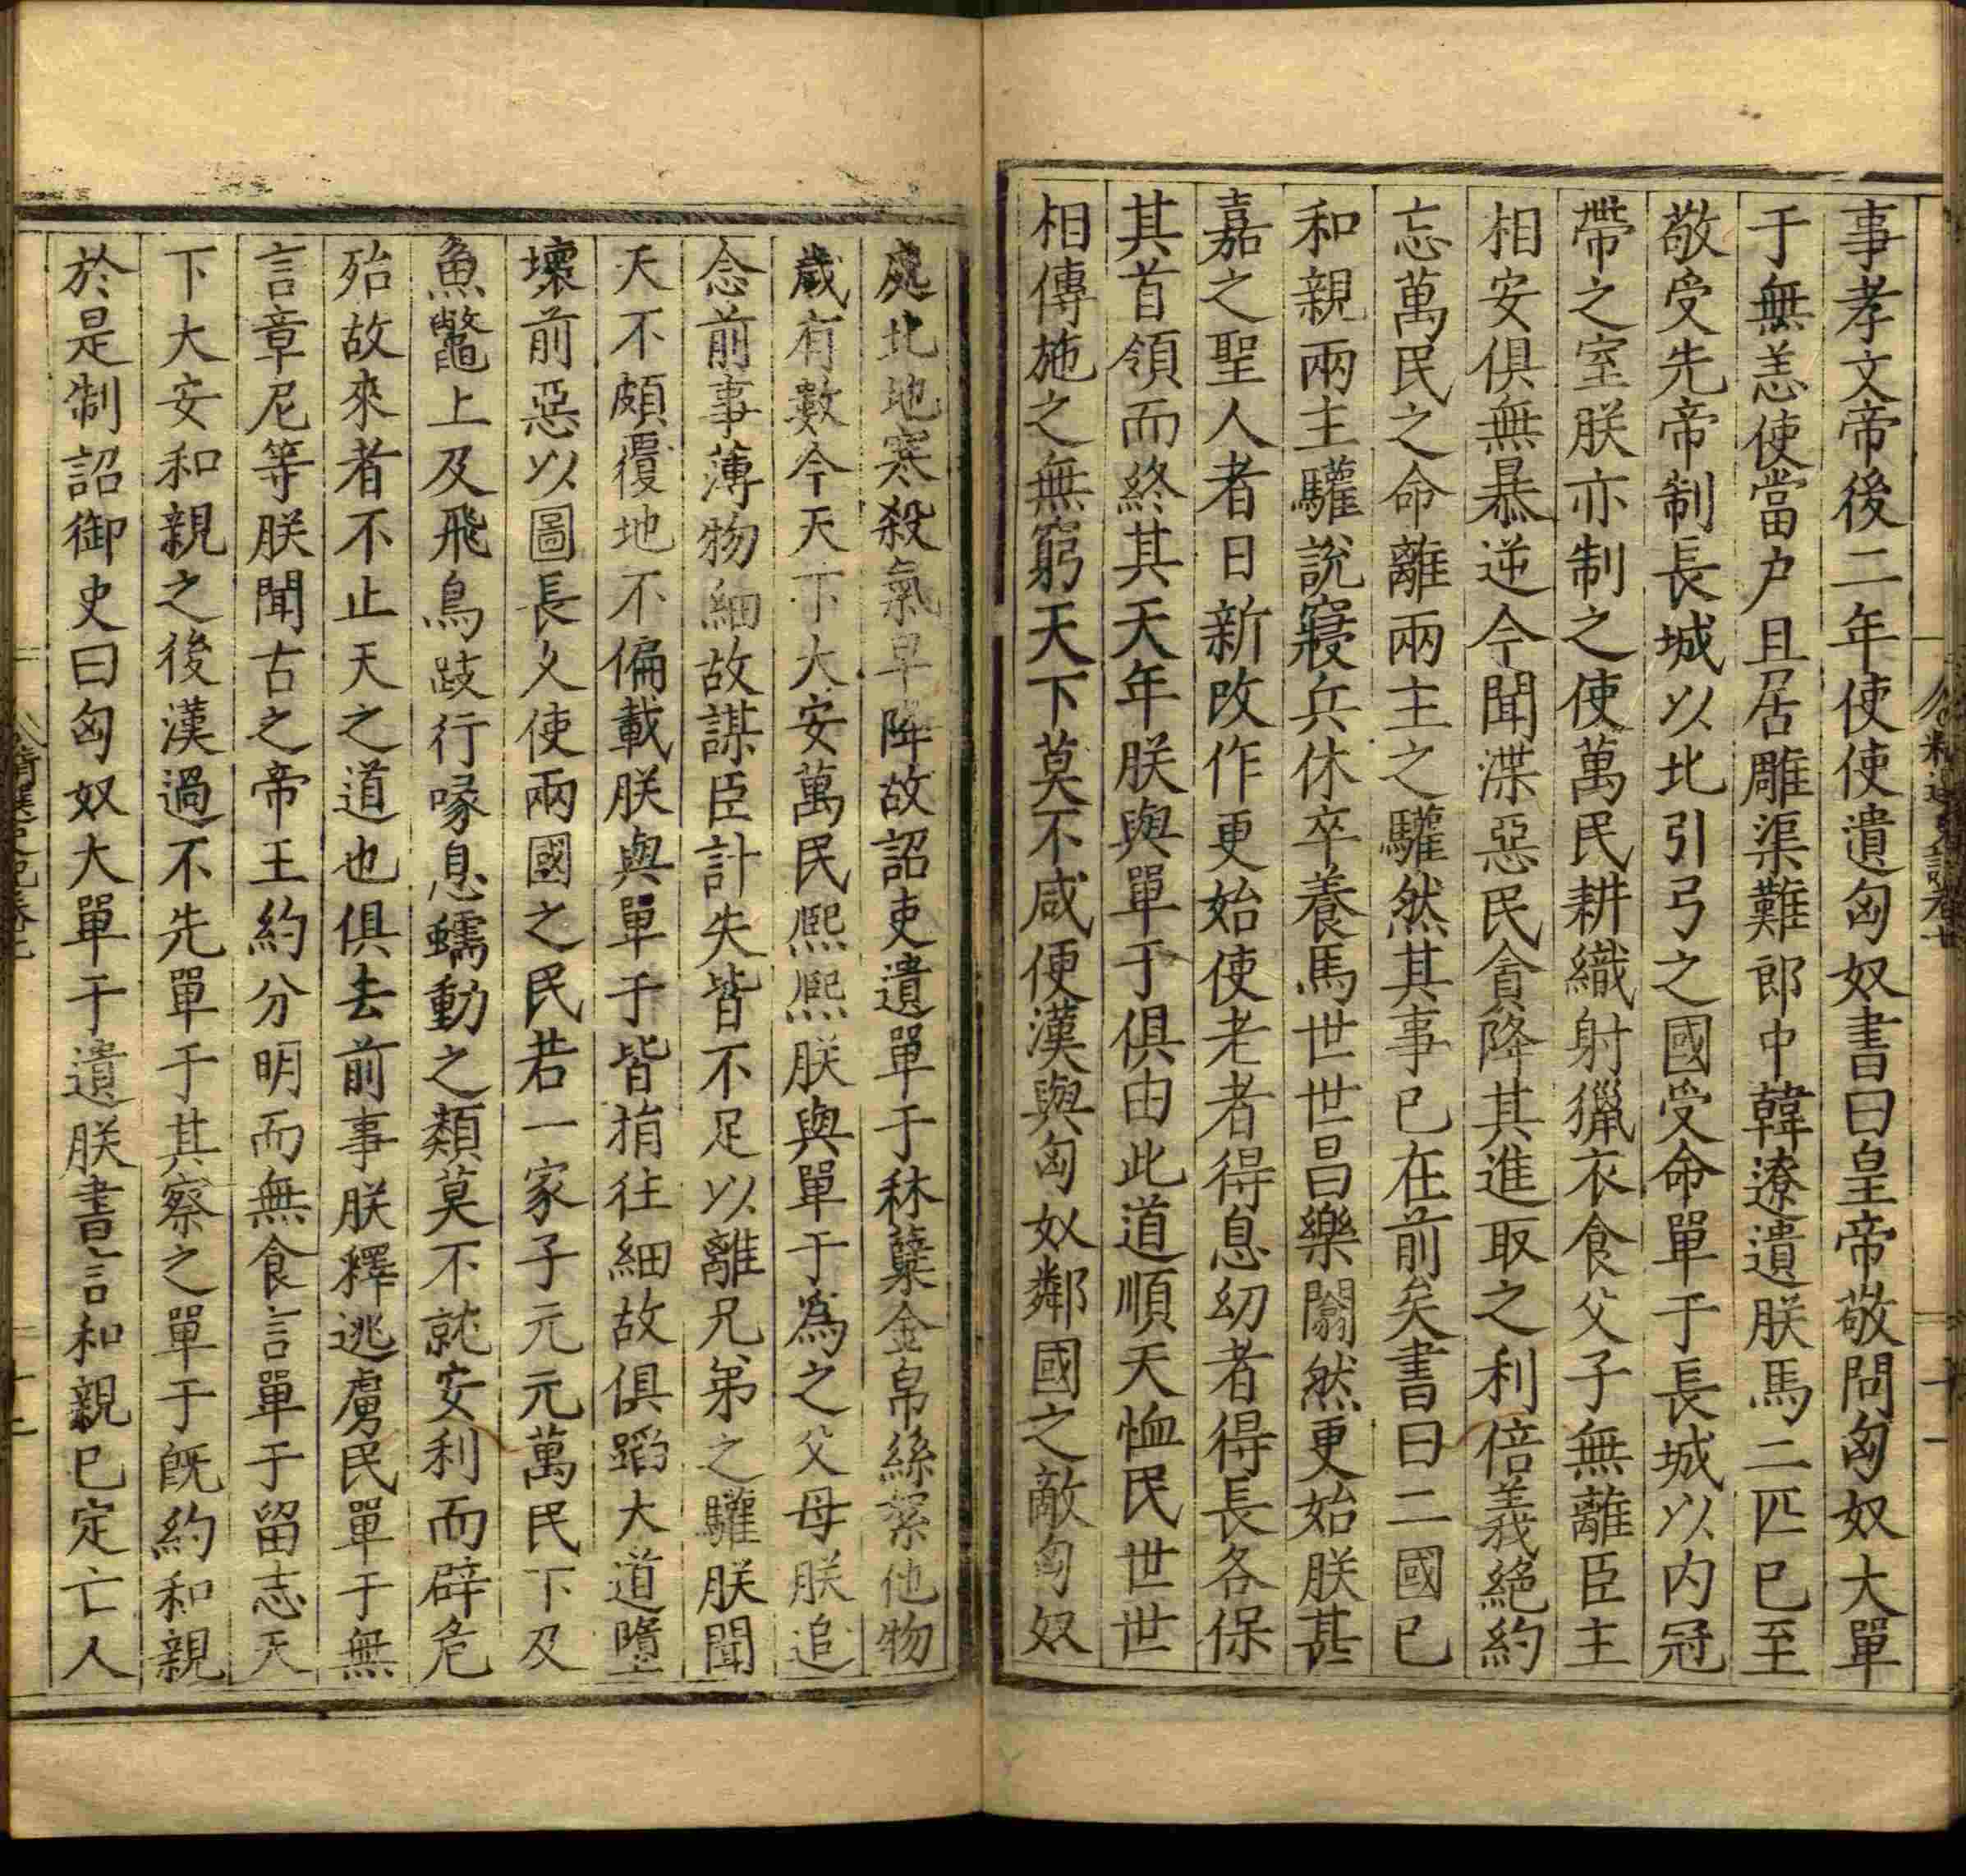 事孝文帝後二年使使遺匈奴書曰皇帝敬問匈奴大單
于無恙使當户且居雕渠難郎中韓遼遺朕馬二匹已至
敬受先帝制長城以北引弓之國受命單于長城以内冠
帶之室朕亦制之使萬民耕織射獵衣食父子無離臣主
相安俱無暴逆今聞渫惡民貪降其進取之利倍義絶約
忘萬民之命離兩主之驩然其事已在前矣書曰二國已
和親兩主驩說寢兵休卒養馬世世昌樂闟然更始朕甚
嘉之聖人者日新改作更始使老者得息幼者得長各保
其首領而終其天年朕與單于俱由此道順天恤民世世
相傳施之無窮天下莫不咸便漢與匈奴鄰國之敵匈奴
處北地寒殺氣早降故詔吏遺單于秫糵金帛絲絮他物
歲有數今天下大安萬民熙熙朕與單于為之父母朕追
念前事薄物細故謀臣計失皆不足以離兄弟之驩朕聞
天不頗覆地不偏載朕與單于皆捐往細故俱蹈大道墮
壞前惡以圖長久使兩國之民若一家子元元萬民下及
魚鼈上及飛鳥跂行喙息蠕動之類莫不就安利而辟危
殆故來者不止天之道也俱去前事朕釋逃虜民單于無
言章尼等朕聞古之帝王約分明而無食言單于留志天
下大安和親之後漢過不先單于其察之單于既約和親
於是制詔御史曰匈奴大單于遺朕書言和親已定亡人